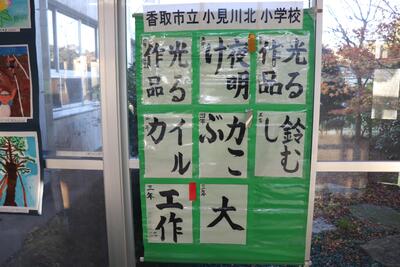 香取市立 小見川北 小学校
光る
作品
鈴む
し
夜明
け
かこ
ぶ
大
光る
作品
イル
カ
工作
三年